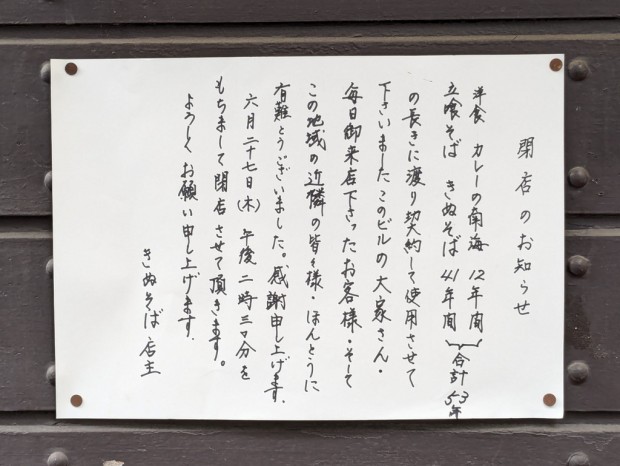 閉店のお知らせ
洋食 カレーの南海 12年間
立喰そば きぬそば 41年間
合計53年
の長きに渡り契約して使用させて
下さいましたこのビルの大家さん・
毎日御来店下さったお客様・そして
この地域の近隣の皆々様・ほんとうに
有難とうございました。感謝申し上げます。
六月二十七日(木) 午後二時三〇分を
もちまして閉店させて頂きます。
よろしくお願い申し上げます。
きぬそば店主